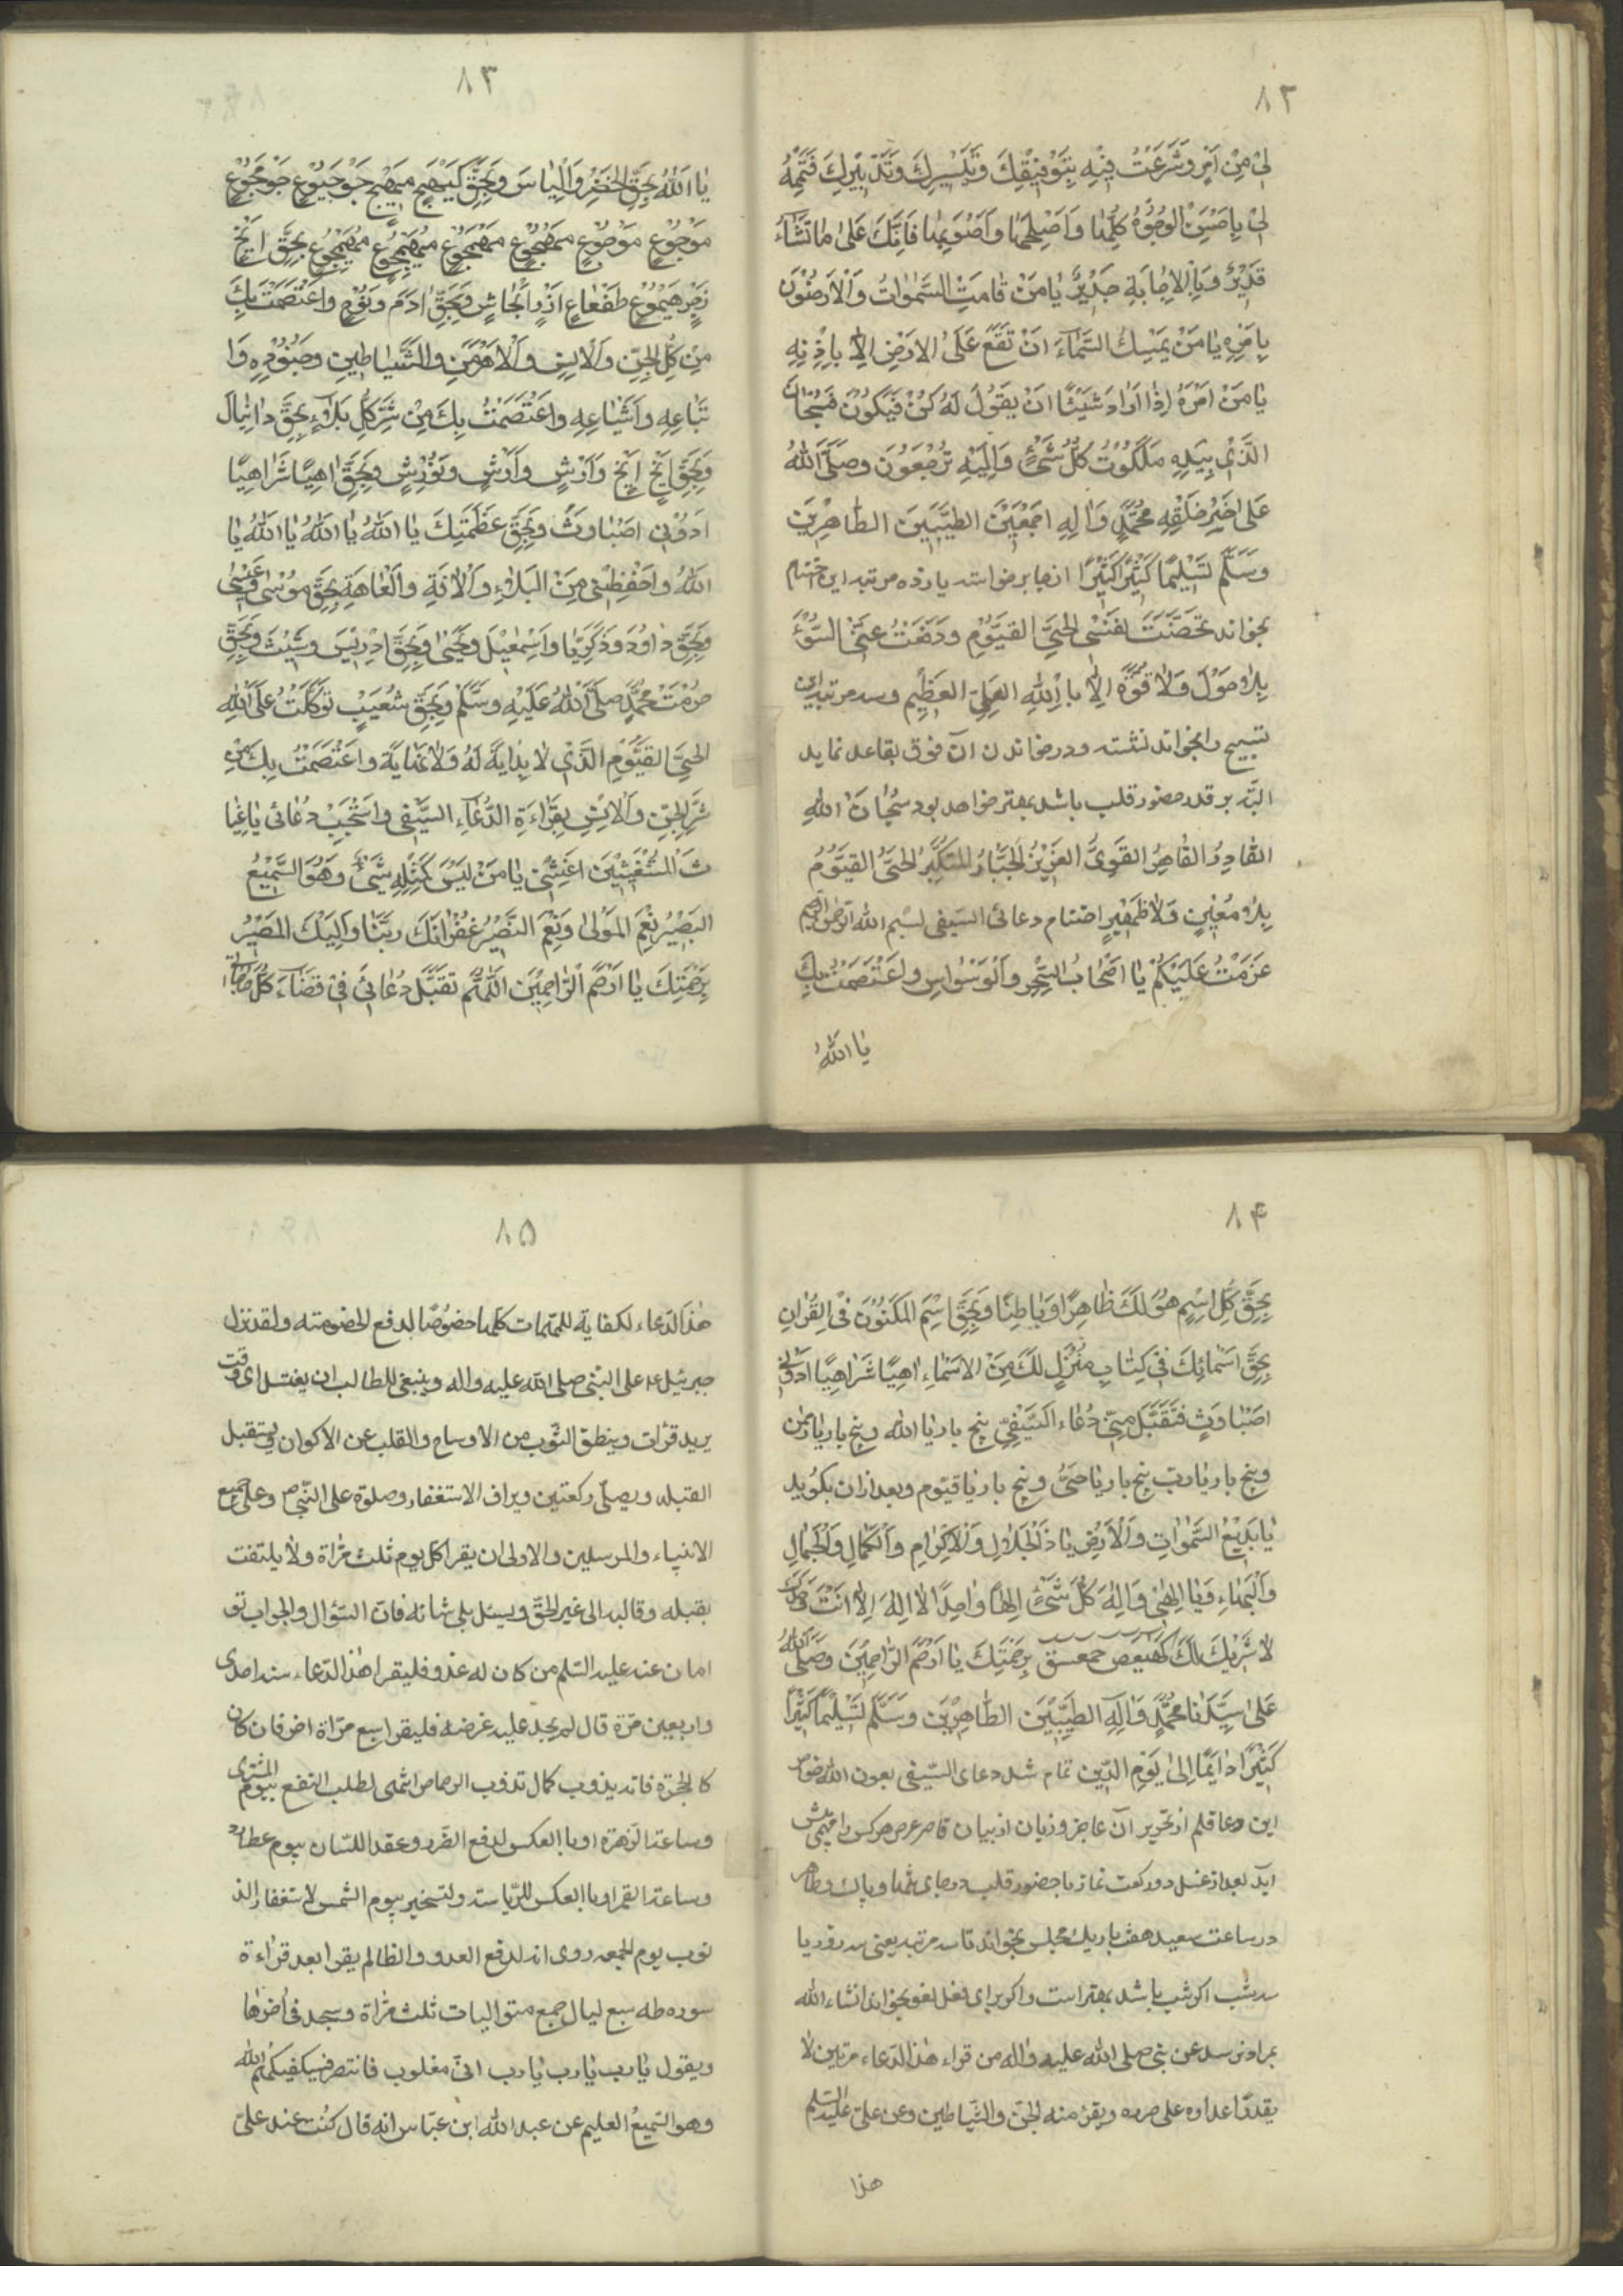 ٨٢
لِىْ مِنْ اَمْرٍ وَشَرَعْتُ فِيْهِ بِتَوْفِيْقِكَ وَتَيْسِيْرِكَ وَتَدْبِيْرِكَ فَتَمِّمْهُ
لِىْ بِاَحْسَنِ الْوُجُوْهُ كُلِّهٰا وَاَصْلِحِهٰا وَاَصْوَبِهٰا فَاِنَّكَ عَلىٰ مٰا تَشٰآءُ
قَدِيْرٌ وَبِالْاِجٰابَةِ جَدِيْرٌ يٰا مَنْ قٰامَتِ السَّمٰوٰاتُ وَالْاَرَضُوْنَ
بِاَمْرِهِ يٰا مَنْ يُمْسِكُ السَّمٰآءَ اَنْ تَقَعَ عَلَى الْاَرْضِ اِلّٰا بِاِذْنِهِ
يٰا مَنْ اَمْرُهُ اِذٰا اَرٰادَ شَيْئًا اَنْ يَقُوْلَ لَهُ كُنْ فَيَكُوْنُ فَسُبْحٰانَ
الَّذِيْ بِيَدِهِ مَلَكُوْتُ كُلِّ شَيْءٍ وَاِلَيْهِ تُرْجَعُوْنَ وَصَلَّى اللّٰهُ
عَلىٰ خَيْرِ خَلْقِهِ مُحَمَّدٍ وَاٰلِهِ اَجْمَعِيْنَ الطَّيِّبِيْنَ الطّٰاهِرِيْنَ
وَسَلَّمَ تَسْلِيْمًا كَثِيْرًا كَثِيْرًا از جا برخواسته يازده مرتبه اين ختام
بخواند تَحَصَّنْتَ لِفَنْسِى الْحَىِّ الْقَيُّوْمِ وَدَفَعْتُ عَنَّى السُّوْءَ
بِلٰا حَوْلَ وَلٰا قُوَّةَ اِلّٰا بِاللّٰهِ الْعَلِىِّ الْعَظِيْمِ وسه مرتبه اين
تسبيح را بخواند نشسته ودر خواندن آن فوق بقاعد نمايد
البته بر قدر حضور قلب باشد بهتر خواهد بود سُبْحٰانَ اللّٰهِ
الْقٰادِرُ الْقٰاهِرُ الْقَوِىُّ الْعَزِيْزُ الْجَبّٰارُ الْمُتَكَبِّرُ الْحَىُّ الْقَيُّوْمُ
بِلٰا مُعِيْنٍ وَلٰا ظَهِيْرٍ اختتام دعائى السيفى بسم الله الرحمن الرحيم
عَزَمْتُ عَلَيْكُمْ يٰا اَصْحٰابُ السِّحْرِ وَالْوَسْوٰاسِ وَاعْتَصَمْتُ بِكَ
يٰا اللّٰهُ
٨٣
يٰا اَللّٰهُ بِحَقِّ الْخَضِرْ وَاَلْيٰاسَ وَبِحَقِّ كَيَهْيَجٍ مَيَهْيَجٍ جَوْجَيُوْعٍ جَوْمَجُوْعٍ
مَوْجُوْعٍ مَوْجُوْعٍ مَهْجُوْعٍ مَهْمَجُوْعٍ مُهَيْمَجُوْعٍ مُهَيْجُوْعٍ بِحَقِّ اَيَخْ
مِنْ كُلِّ الْجِنِّ وَاَلْاِنْسِ وَاَلْاَهْرَمَنِ وَالشَّيٰاطِيْنِ وَجُنُوْدِهِ وَا
تْبٰاعِهِ وَاَشْيٰاعِهِ وَاعْتَصَمْتُ بِكَ مِنْ شَرِّ كُلِّ بَلٰاءٍ بِحَقِّ دٰانِيٰالَ
وَبِحَقِّ اَيَخٍ اَيَخٍ وَاَرَشٍ وَاَرَشٍ وَنَوْرَشٍ وَبِحَقِّ اَهِيًّا شَرٰاهِيًّا
اَدُوْنٖى اَصْبٰاوُثْ وَبِحَقِّ عَظَمَتِكَ يٰا اَللّٰهُ يٰا اَللّٰهُ يٰا اَللّٰهُ يٰا
اَللّٰهُ وَاحْفِظْنى مِنَ الْبَلٰاءِ وَاَلْاٰفَةِ وَالْعٰاهَةِ بِحَقِّ مُوْسٰى وَعِيْسٰى
وَبِحَقِّ دٰاوُدَ وَذَكَرِيّٰا وَاَسْمٰعِيْلَ وَيَحْيٰى وَبِحَقِّ اِدْرِيْسَ وَشَيْثَ وَبِحَقِّ
حُرْمَتْ مُحَمَّدٍ صَلَّى اللّٰهُ عَلَيْهِ وَسَلَّمْ وَبِحَقِّ شُعَيْبٍ تَوَكَّلْتُ عَلَى اللّٰهِ
الْحَىِّ الْقَيُّوْمِ الَّذِيْ لٰا بِدٰايَةَ لَهُ وَلٰا نِهٰايَةَ وَاعْتَصَمْتُ بِكَ مِنْ
شَرِّ الْجِنِّ وَاَلْاِنْسِ بِقِرٰاءَةِ الدُّعٰآءِ السَّيْفِى وَاسْتَجِبْ دُعٰائى يٰا غِيٰا
ثَ الْمُسْتَغِيْثِيْنَ اَغِثْنِىْ يٰا مَنْ لَيْسَ كَمِثْلِهِ شَيْءٌ وَهُوَ السَّمِيْعُ
الْبَصِيْرُ نِعْمَ الْمَوْلٰى وَنِعْمَ النَّصِيْرُ غُفْرٰانَكَ رَبَّنٰا وَاِلَيْكَ الْمَصِيْرُ
بِرَحْمَتِكَ يٰا اَرْحَمَ الرّٰاحِمِيْنَ اَللّٰهُمَّ تَقَبَّلْ دُعٰائى فِىْ قَضٰآءَ كُلِّ حٰاجٰاتٍ
٨۴
بِحَقِّ كُلِّ اِسْمٍ هُوَ لَكَ ظٰاهِرًا وَبٰاطِنًا وَبِحَقِّ اِسْمِ الْمَكْنُوْنِ فِى الْقُرْاٰنِ
بِحَقِّ اَسْمٰائِكَ فِىْ كِتٰابِ مُنْزَلٍ لَكَ مِنَ الْاَسْمٰاءِ اَهِيًّا شَرٰاهِيًّا اَدُوْنٖى
اَصْبٰاوُثٍ فَتَقَبَّلْ مِنّىْ دُعٰاءِ السَّيْفِىْ پنج بار يٰا اللّٰه وپنج بار يٰا رحمن
وپنج بار يٰا ربّ پنج بار يٰا حَىُّ وپنج بار يٰا قيّوم وبعد از ان بكويد
يٰا بَدِيْعَ السَّمٰوٰاتِ وَاَلْاَرْضِ يٰا ذَا الْجَلٰالِ وَاَلْاِكْرٰامِ وَالْكَمٰالِ وَالْجَمٰالِ
وَالْبَهٰاءِ وَيٰا اِلٰهِىْ وَاِلٰهَ كُلِّ شَيْءٍ اِلٰهًا وٰاحِدًا لٰا اِلٰهَ اِلّٰا اَنْتَ وَحْدَكَ
لٰا شَرِيْكَ لَكَ كهيعص حمعسق بِرَحْمَتِكَ يٰا اَرْحَمَ الرّٰاحِمِيْنَ وَصَلَّى اللّٰهُ
عَلىٰ سَيِّدِنٰا مُحَمَّدٍ وَاٰلِهِ الطَّيِّبِيْنَ الطّٰاهِرِيْنَ وَسَلَّمَ تَسْلِيْمًا كَثِيْرًا
كَثِيْرًا دٰائِمًا اِلىٰ يَوْمِ الدِّيْنِ تمام شد دعاى السيفى بعون الله خواص
اين دعا قلم از تحرير آن عاجز وزبان از بيان قاصر عرض هركس را مهمى پيش
آيد بعد از غسل دو ركعت نماز با حضور قلب در جاى تنها وپاك وطاهر
در ساعت سعيد هفت بار يك مجلس بخواند تا سه مرتبه يعنى سه روز يا
سه شب اكر شب باشد بهتر است واكر براى بخواند انشاء الله
بمراد برسد عن نبى صلى الله عليه واله من قراء هذا الدعاء مرتين لا
يقدر اعداوه على ضرره ويفر منه الجن والشياطين وعن على عليه السلم
هذا
٨۵
هذا الدعاء لكفاية للمهمات كلها خصوصًا لدفع الخصومته ولقد نزل
جبرئيل ع على النبى صلى الله عليه واله وينبغى للطالب ان يغتسل اى وقت
يريد قرأت وينطق الثوب من الاوساخ والقلب عن الاكوان ويستقبل
القبله ويصلى ركعتين ويراف الاستغفار وصلوة على النبى ص وعلى جميع
الانبياء والمرسلين والاولى ان يقرا كل يوم ثلث مرٰاة ولا يلتفت
بقبله وقالبه الى غير الحق ويسئل بلى شانه فان السؤال والجواب تو
امان عنه عليه السلم من كان له عدو فليقرا هذا الدعاء احدى
واربعين مرة قال لم يجد عليه غرضه فليقرا سبع مرّاة اخر فان كان
كالحجرة فانه يذوب كمال تذوب الرصاص انتهى لطلب النفع بيوم المشترى
وساعته الزهرة او بالعكس لدفع الضرر وعقد اللسان بيوم عطارد
وساعته القمر او بالعكس للرياسته ولتسخير بيوم الشمس لاستغفار الذ
نوب يوم الجمعه روى انه لدفع العدو والظالم يقرا بعد قراءة
سوره طه سبع ليال جمع متواليات ثلث مرٰاة وسجد فى اخرها
ويقول يٰا رب يٰا رب يٰا رب انى مغلوب فانتصر فسيكفيكهم الله
وهو السميع العليم عن عبد الله ابن عباس انه قال كنت عند على